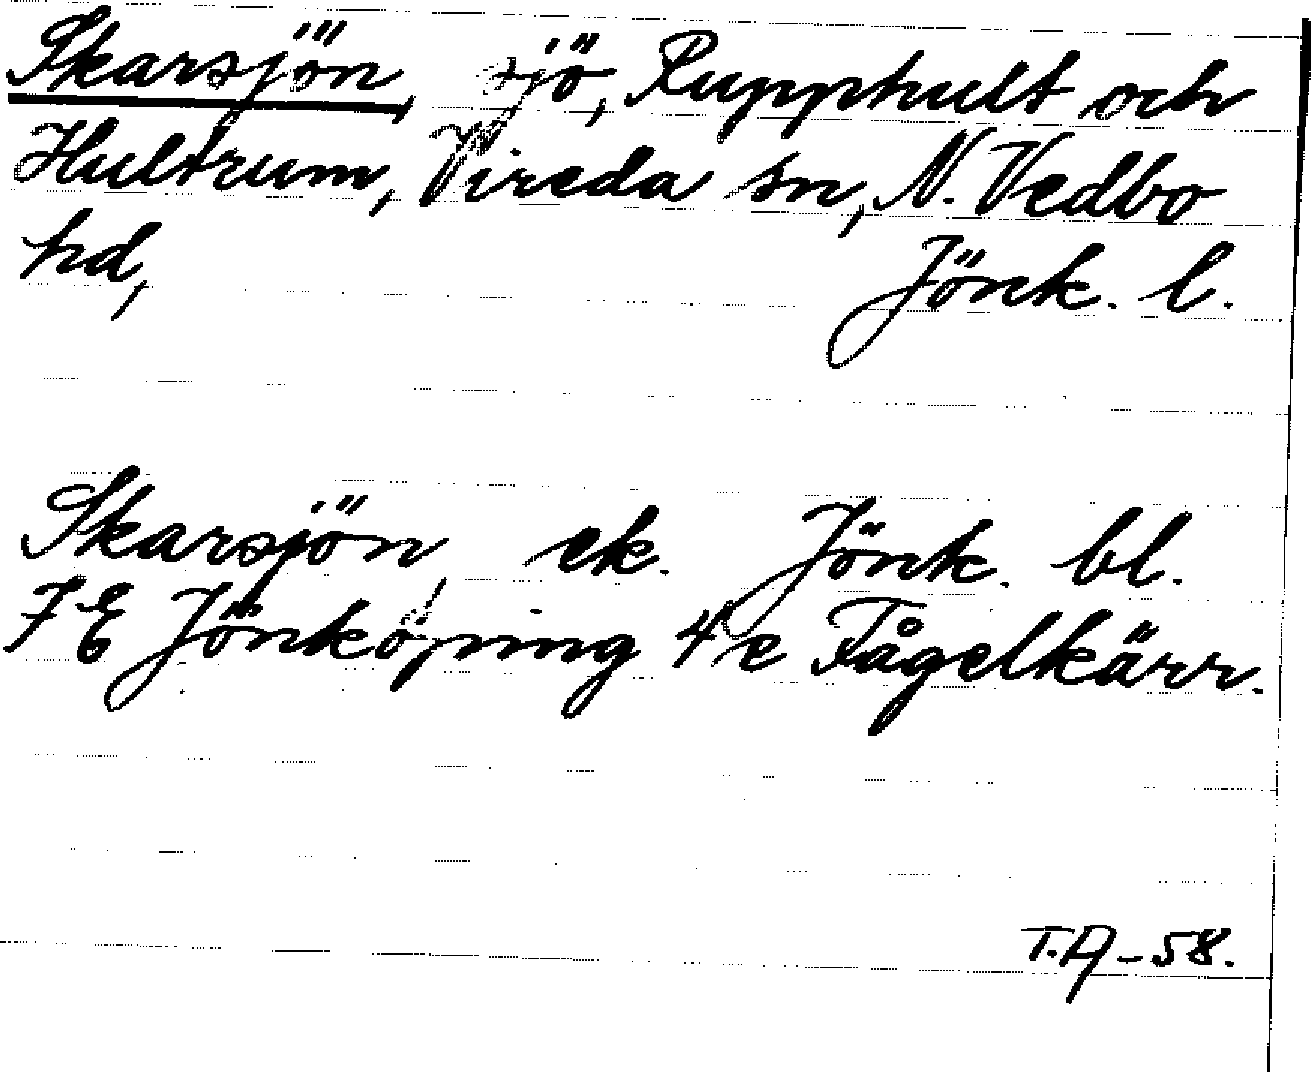 Skarsjön, sjö, Rupphult och
Hultrum, Vireda sn, N. Vedbo
hd, Jönk. l.
Skarsjön, ek. Jönk. bl.
7E Jönköping 4e Fågelkärr.
T.A-58.